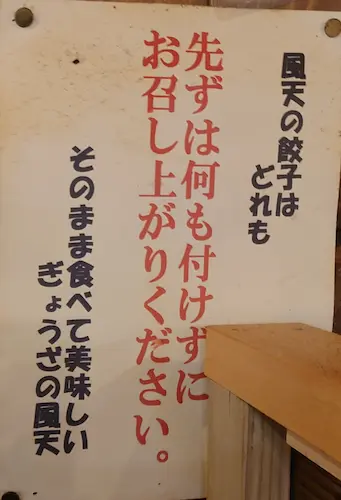 風天の餃子は
どれも
先ずは何も付けずに
お召し上がりください。
そのまま食べて美味しい
ぎょうざの風天